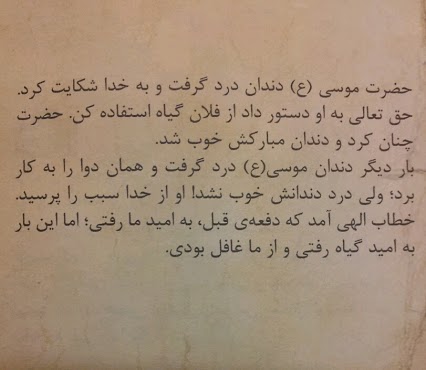 حضرت موسی (ع) دندان درد گرفت و به خدا شکایت کرد.
حق تعالی به او دستور داد از فلان گیاه استفاده کن. حضرت
چنان کرد و دندان مبارکش خوب شد.
بار دیگر دندان موسی(ع) درد گرفت و همان دوا را به کار
برد؛ ولی درد دندانش خوب نشد! او از خدا سبب را پرسید.
خطاب الهی آمد که دفعه‌ی قبل، به امید ما رفتی؛ اما این بار
به امید گیاه رفتی و از ما غافل بودی.